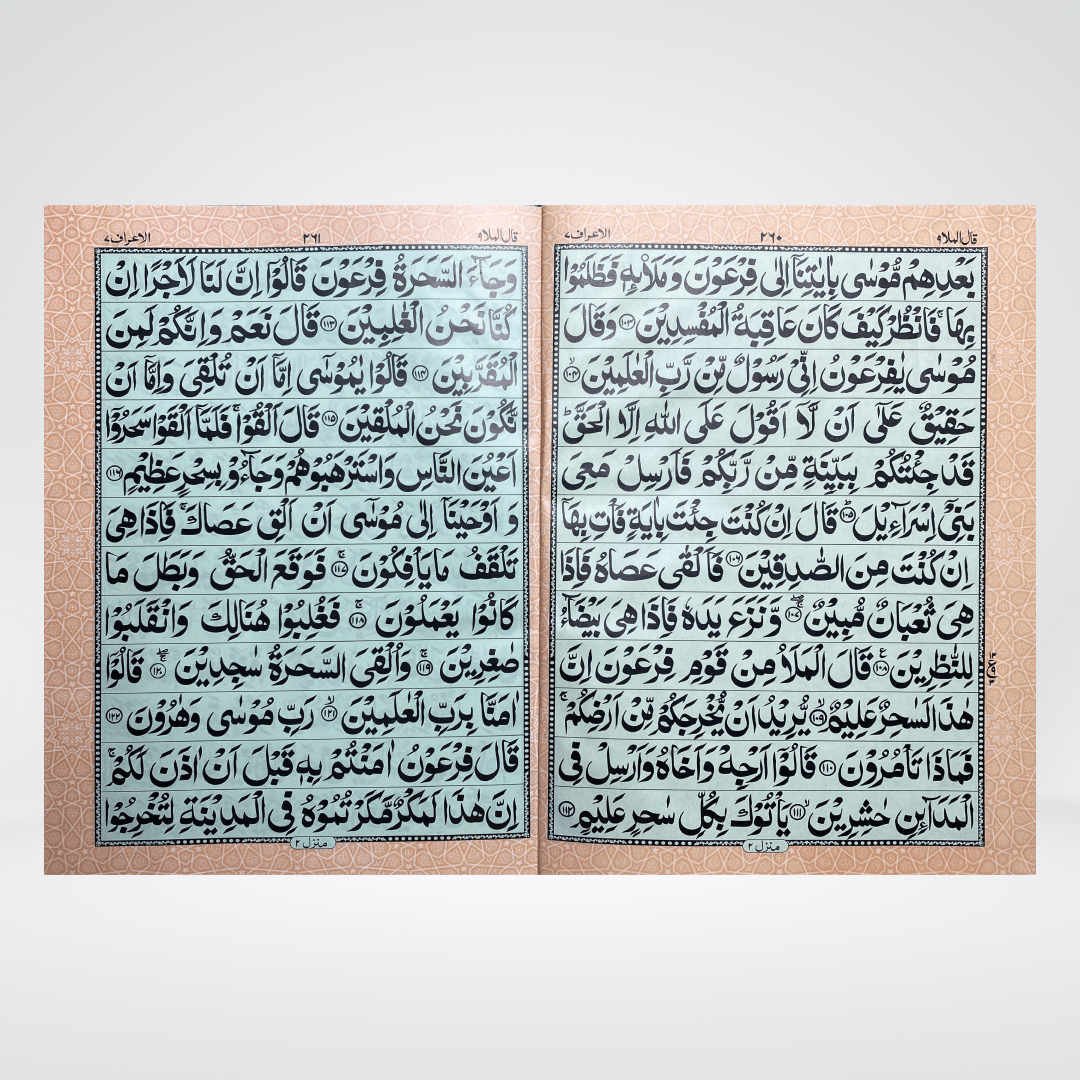 قال الملا ۹
۲۶۰
الاعراف ۷
بَعْدِهِمْ مُّوْسٰى بِاٰيٰتِنَاۤ اِلٰى فِرْعَوْنَ وَ مَلَا۟ىِٕهٖ فَظَلَمُوْا
بِهَا ۚ فَانْظُرْ كَيْفَ كَانَ عَاقِبَةُ الْمُفْسِدِيْنَ ۝۱۰۳ وَقَالَ
مُوْسٰى يٰفِرْعَوْنُ اِنِّىْ رَسُوْلٌ مِّنْ رَّبِّ الْعٰلَمِيْنَ ۝۱۰۴ۙ
حَقِيْقٌ عَلٰٓى اَنْ لَّاۤ اَقُوْلَ عَلَى اللّٰهِ اِلَّا الْحَقَّ ؕ
قَدْ جِئْتُكُمْ بِبَيِّنَةٍ مِّنْ رَّبِّكُمْ فَاَرْسِلْ مَعِىَ
بَنِىْۤ اِسْرَآءِيْلَ ۝۱۰۵ؕ قَالَ اِنْ كُنْتَ جِئْتَ بِاٰيَةٍ فَاْتِ بِهَاۤ
اِنْ كُنْتَ مِنَ الصّٰدِقِيْنَ ۝۱۰۶ فَاَلْقٰى عَصَاهُ فَاِذَا
هِىَ ثُعْبَانٌ مُّبِيْنٌ ۝۱۰۷ۚۖ وَّ نَزَعَ يَدَهٗ فَاِذَا هِىَ بَيْضَآءُ
لِلنّٰظِرِيْنَ ۝۱۰۸ع قَالَ الْمَلَاُ مِنْ قَوْمِ فِرْعَوْنَ اِنَّ
هٰذَا لَسٰحِرٌ عَلِيْمٌ ۝۱۰۹ۙ يُّرِيْدُ اَنْ يُّخْرِجَكُمْ مِّنْ اَرْضِكُمْ ۚ
فَمَاذَا تَاْمُرُوْنَ ۝۱۱۰ قَالُوْۤا اَرْجِهْ وَاَخَاهُ وَاَرْسِلْ فِى
الْمَدَآئِنِ حٰشِرِيْنَ ۝۱۱۱ۙ يَاْتُوْكَ بِكُلِّ سٰحِرٍ عَلِيْمٍ ۝۱۱۲
منزل ۲
قال الملا ۹
۲۶۱
الاعراف ۷
وَجَآءَ السَّحَرَةُ فِرْعَوْنَ قَالُوْۤا اِنَّ لَنَا لَاَجْرًا اِنْ
كُنَّا نَحْنُ الْغٰلِبِيْنَ ۝۱۱۳ قَالَ نَعَمْ وَاِنَّكُمْ لَمِنَ
الْمُقَرَّبِيْنَ ۝۱۱۴ قَالُوْا يٰمُوْسٰٓى اِمَّاۤ اَنْ تُلْقِىَ وَاِمَّاۤ اَنْ
نَّكُوْنَ نَحْنُ الْمُلْقِيْنَ ۝۱۱۵ قَالَ اَلْقُوْا ۚ فَلَمَّاۤ اَلْقَوْا سَحَرُوْۤا
اَعْيُنَ النَّاسِ وَاسْتَرْهَبُوْهُمْ وَجَآءُوْ بِسِحْرٍ عَظِيْمٍ ۝۱۱۶
وَ اَوْحَيْنَاۤ اِلٰى مُوْسٰٓى اَنْ اَلْقِ عَصَاكَ ۚ فَاِذَا هِىَ
تَلْقَفُ مَا يَاْفِكُوْنَ ۝۱۱۷ۚ فَوَقَعَ الْحَقُّ وَبَطَلَ مَا
كَانُوْا يَعْمَلُوْنَ ۝۱۱۸ۚ فَغُلِبُوْا هُنَالِكَ وَانْقَلَبُوْا
صٰغِرِيْنَ ۝۱۱۹ۚ وَاُلْقِىَ السَّحَرَةُ سٰجِدِيْنَ ۝۱۲۰ۚۖ قَالُوْۤا
اٰمَنَّا بِرَبِّ الْعٰلَمِيْنَ ۝۱۲۱ۙ رَبِّ مُوْسٰى وَهٰرُوْنَ ۝۱۲۲
قَالَ فِرْعَوْنُ اٰمَنْتُمْ بِهٖ قَبْلَ اَنْ اٰذَنَ لَكُمْ ۚ
اِنَّ هٰذَا لَمَكْرٌ مَّكَرْتُمُوْهُ فِى الْمَدِيْنَةِ لِتُخْرِجُوْا
منزل ۲